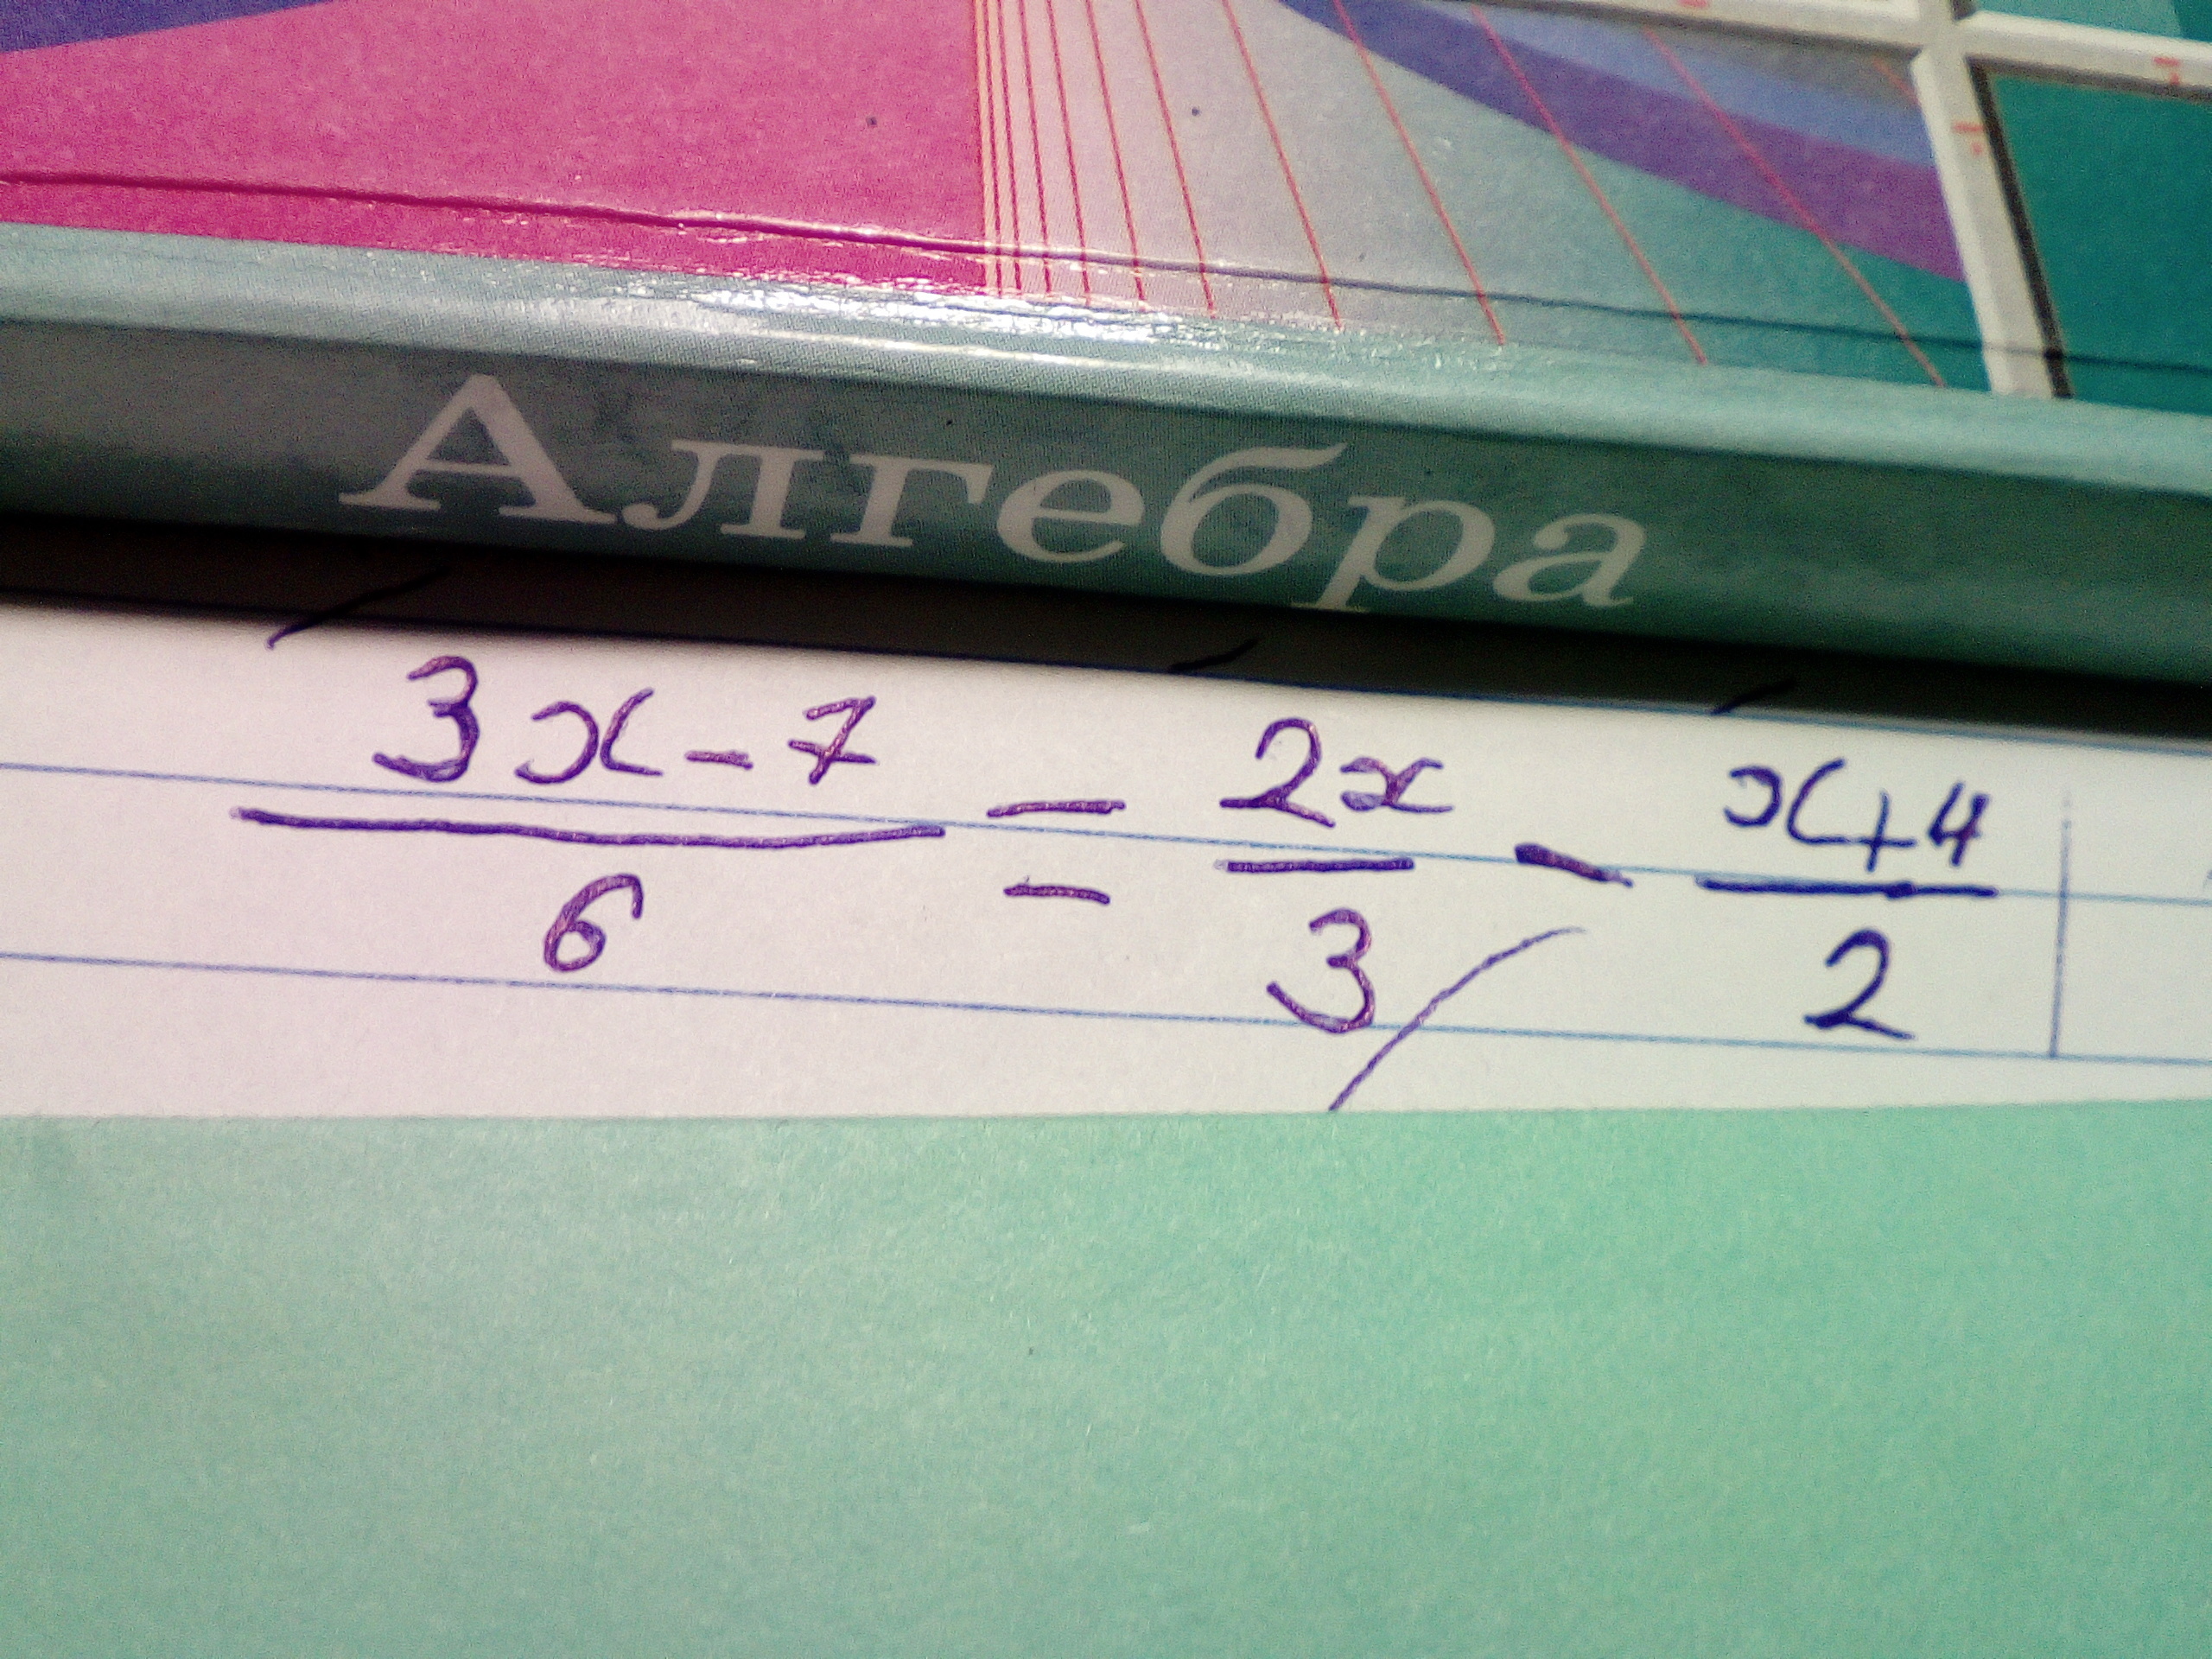 Алгебра
3x-7 / 6 = 2x / 3 - x+4 / 2